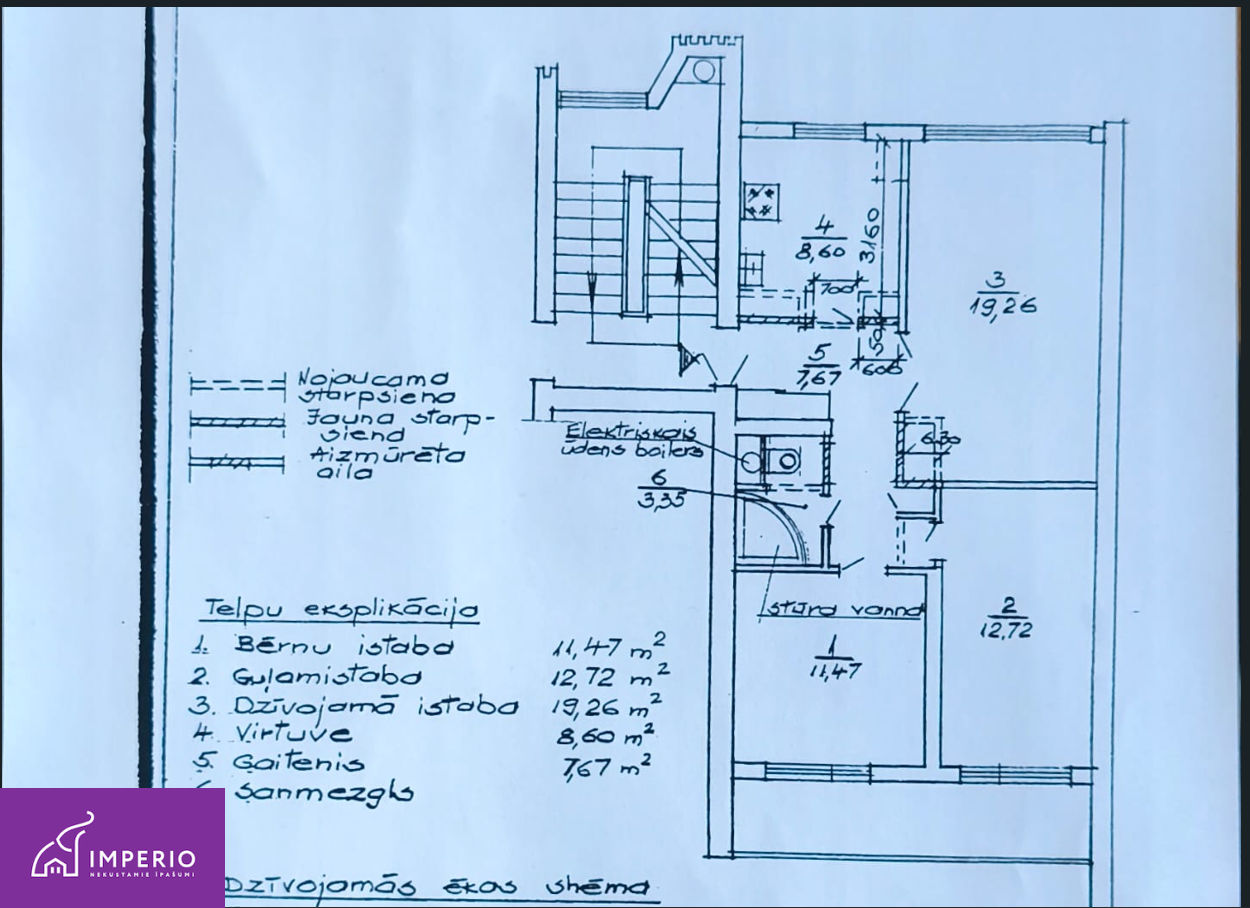 4
8,60
3160
700
3
19,26
5
7,67
50
600
Nojaucama
starpsiena
Jauna starp-
siena
Aizmūrēta
aila
630
Elektriskais
ūdens boilers
6
3,35
stūra vanna
2
12,72
1
11,47
Telpu eksplikācija
1. Bērnu istaba 11,47 m²
2. Guļamistaba 12,72 m²
3. Dzīvojamā istaba 19,26 m²
4. Virtuve 8,60 m²
5. Gaitenis 7,67 m²
Sanmezgls
IMPERIO
NEKUSTAMIE ĪPAŠUMI
Dzīvojamās ēkas shēma